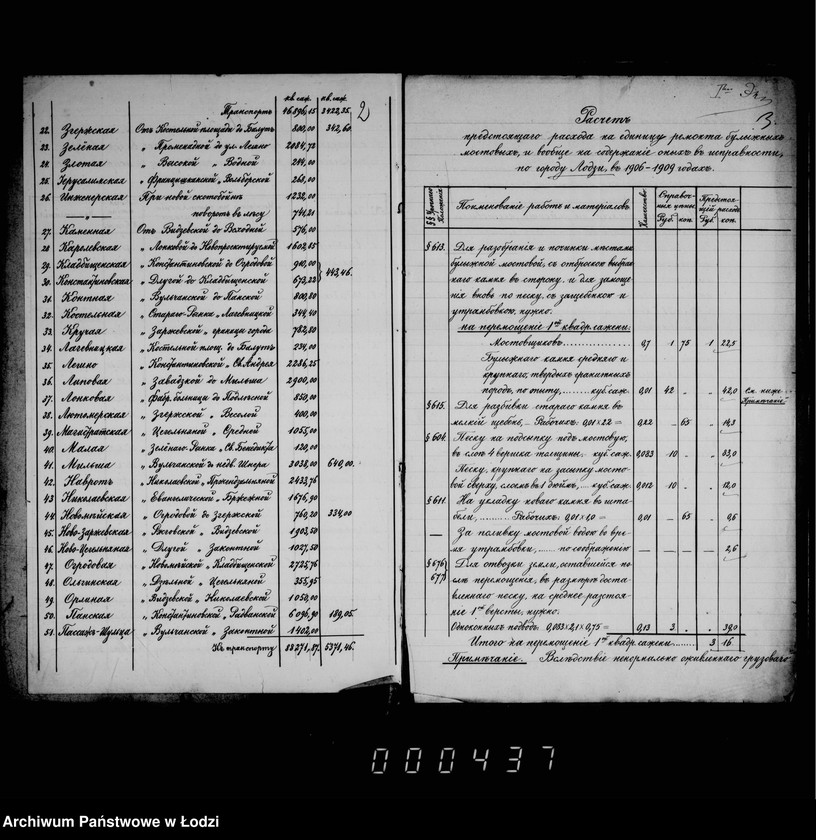 2
кв. саж. кв. саж.
Транспортъ 46896,15 3422,35
22. Згержская Отъ Костельной площади до Балутъ 800,00 342,60
23. Зелёная „ Променадной до ул. Лешно 2084,72
24. Злотая „ Високой „ Водной 244,00
25. Іерусалимская „ Францишканской „ Вольборской 268,00
26. Инженерская При новой скотобойнѣ 1232,00
поворотъ въ лѣсу
27. Каменная Отъ Видзевской до Всходней 576,00
28. Каролевская „ Лонковой до Новопроектируемой 1602,85
29. Кладбищенская „ Константиновской до Огродовой 910,00
30. Константиновская „ Длугой до Кладбищенской 443,46
31. Контная „ Вульчанской до Панской 800,80
32. Костельная „ Стараго-Рынка „ Лагевницкой 344,40
33. Кручая „ Заржевской „ границы города 782,80
34. Лагевницкая „ Костельной площ. до Балутъ 234,00
35. Лешно „ Константиновской „ Св. Андрея 2286,25
36. Липовая „ Завадской до Мыльша 2900,00
37. Лонковая „ фабр. больницы до Подлѣсной 850,00
38. Лютомерская „ Згержской „ Веселой 400,00
39. Магистратская „ Цегельняной „ Средней 1055,00
40. Малая „ Зелёнаго Рынка „ Св. Бенедикта 120,00
41. Мыльша „ Вульчанской до недв. Шнера 3038,00 640,00
42. Навротъ „ Николаевской „ 2433,76
43. Николаевская „ Евангелической „ 1676,90
44. Новомѣйская „ Огродовой до Згержской 760,20 334,00
45. Ново-Заржевская „ Ржговской „ Видзевской 1902,50
46. Ново-Цегельняная „ Длугой „ Законтной 1027,50
47. Огродовая „ Новомѣйской „ Кладбищенской 2725,76
48. Ольгинская „ Дзѣльной „ Цегельняной 355,95
49. Орлиная „ Видзевской „ Николаевской 1050,00
50. Панская „ Константиновской „ Радванской 6096,90 189,05
51. Пассажъ-Шульца „ Вульчанской „ Законтной 1402,00
Къ транспорту 5371,46
3
Расчетъ
предстоящаго расхода на единицу ремонта булыжныхъ
мостовыхъ, и вообще на содержаніе оныхъ въ исправности,
по городу Лодзи, въ 1906-1909 годахъ.
Поименованіе работъ и матеріаловъ.
Количество
Справоч. цѣнѣ Руб. коп.
Предстоящій расходъ Руб. коп.
§ 613. Для разобранія и починки мостами
булыжной мостовой, съ отброскою выбран
наго камня въ сторону и для замоще
нія вновь по песку, съ защебенкою и
утрамбовкою, нужно:
на перемощеніе 1ой квадр. сажени:
Мостовщиковъ 0,7 1 75 1 22,5
Булыжнаго камня средняго и
крупнаго, твердыхъ гранитныхъ
породъ, по опыту, куб. саж. 0,01 42 „ „ 42,0 См. ниже
Примѣчаніе
§ 615. Для разбивки стараго камня въ
мелкій щебень, - Рабочихъ: 0,01 × 22 = 0,22 „ 65 „ 14,3
§ 604. Песку на подсыпку подъ мостовую,
въ слоѣ 4 вершка толщины куб. саж. 0,033 10 „ „ 33,0
Песку, крупнаго на засыпку мосто
вой сверху, слоемъ въ 1 дюймъ, куб. саж. 0,012 10 „ „ 12,0
§ 611. На укладку новаго камня въ шта
бели, Рабочихъ: 0,01 × 1,0 = 0,01 — 65 „ 0,6
— За поливку мостовой водою во вре
мя утрамбовки, по соображенію — — — „ 2,6
§ 676, 677 Для отвозки земли, оставшейся по
слѣ перемощенія, въ размѣрѣ доста
вленнаго песку, на среднее разстоя
ніе 1ой версты, нужно:
Одноконныхъ подводъ: 0,083 × 2,1 × 0,75 = 0,13 3 „ „ 39,0
Итого на перемощеніе 1ой квадр. сажени 3 16
Примѣчаніе. Вслѣдствіе ненормально оживленнаго грузоваго
000437
Archiwum Państwowe w Łodzi